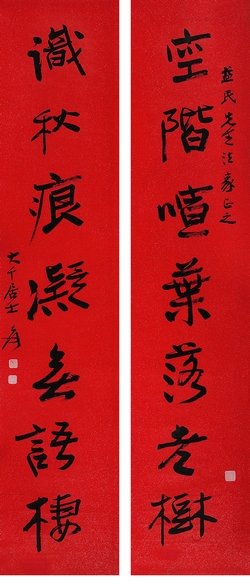 民先生法家正之
空階喧葉落老樹
識秋痕凝無語棲
大千居士爰